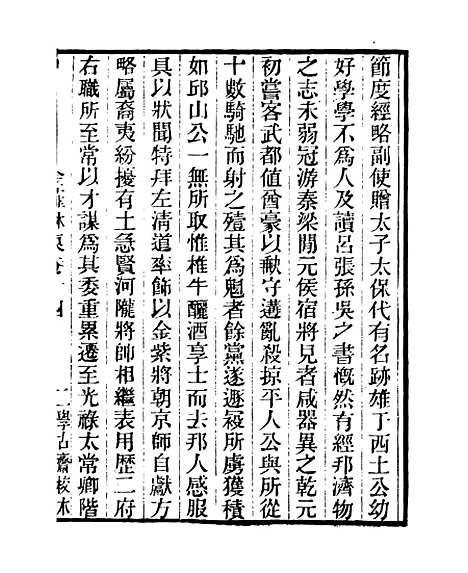 節度經略副使贈太子太保代有名跡雄于西土公幼
好學學不爲人及讀呂張孫吳之書慨然有經邦濟物
之志未弱冠游秦梁閒元侯宿將見者咸器異之乾元
初嘗客武都值酋豪以獻守遘亂殺掠平人公與所從
十數騎馳而射之殪其爲魁者餘黨遂遯歸所虜獲積
如邱山公一無所取惟椎牛釃酒享士而去邦人感服
具以狀聞特拜左清道率飾以金紫將朝京師自獻方
略屬裔夷紛擾有土急賢河隴將帥相繼表用歷二府
右職所至常以才謀爲其委重累遷至光祿太常卿階
學古齋校本